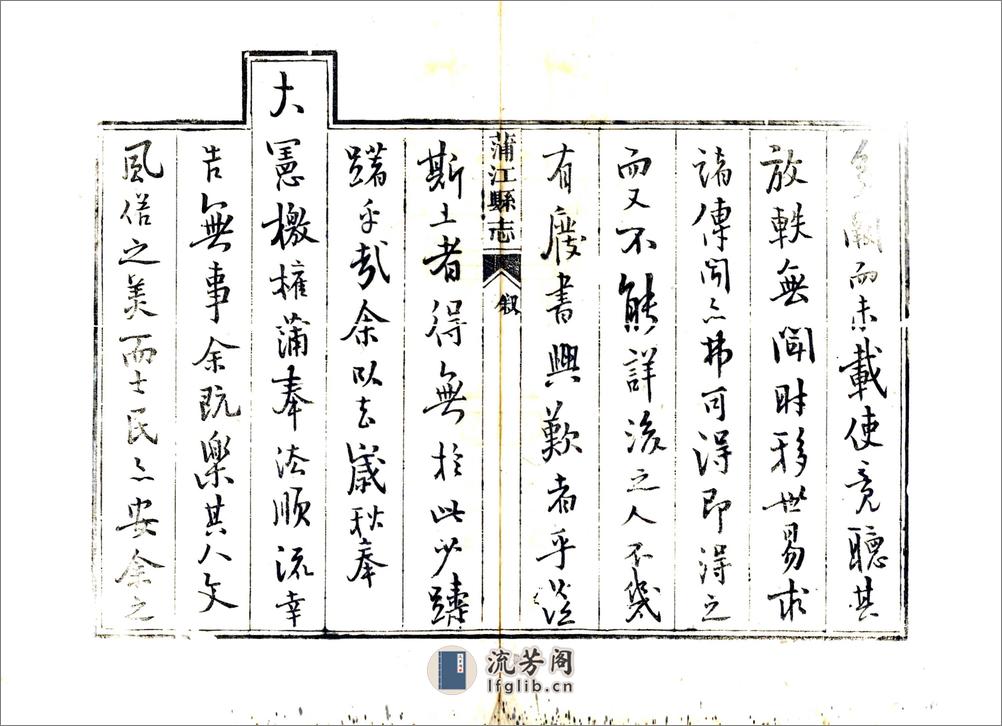 多闕而未載使竟聽其
放軼無聞時移世易求
諸傳聞亦弗可得即得之
而又不能詳後之人不幾
有廢書興歎者乎涖
蒲江縣志
叙
斯土者得無於此少躊
躇乎哉余以去歲秋奉
大憲檄權蒲奉法順流幸
告無事余既樂其人文
風俗之美而士民亦安余之
流芳阁
lfglib.cn